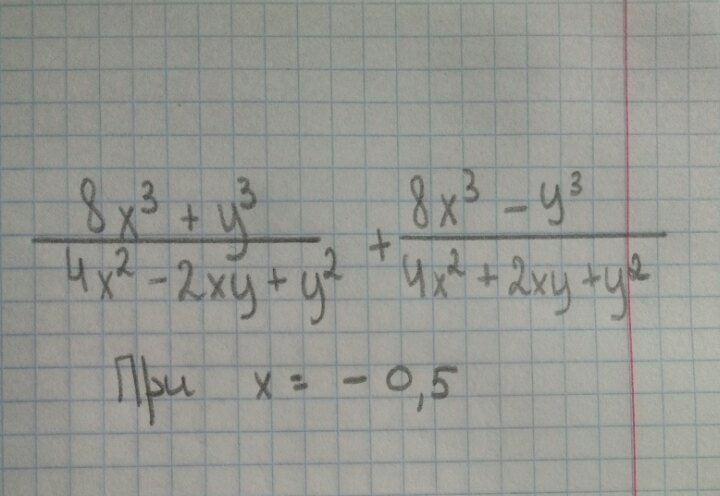 8x³ + y³ / 4x² - 2xy + y² + 8x³ - y³ / 4x² + 2xy + y²
При x = - 0,5